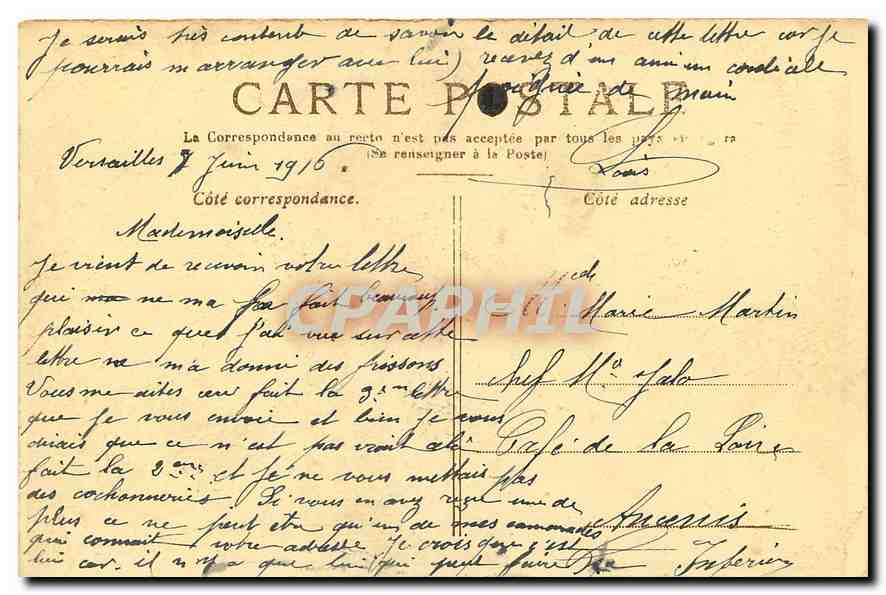 Je serais très contente de savoir le détail de cette lettre car je
pourrais m arranger avec lui) recevez d'un ami un cordiale
poignée de main
CARTE POSTALE
La Correspondance au recto n'est pas acceptée par tous les pays
(Se renseigner à la Poste)
Louis
Versailles 7 Juin 1916
Côté correspondance.
Côté adresse
Mademoiselle.
Je vient de recevoir votre lettre
qui ne ma fait beaucoup
plaisir ce que j'ai vue sur cette
lettre m'a donné des frissons
Vous me dites que fait la 3em lettre
que je vous envoie et bien je vous
dirais que ce n'est pas vrait
fait la 2em et je ne vous mettais pas
des cochonneries. Si vous en avez reçue une de
plus ce ne peut etre qu'un de mes camarades
qui connait votre adresse Je crois que c'est
lui car il n'y a que lui qui peut faire
CPAPHIL
Melle Marie Martin
chef Mo Jalo
Café de la Loire
Ancenis
Loire Inferieure